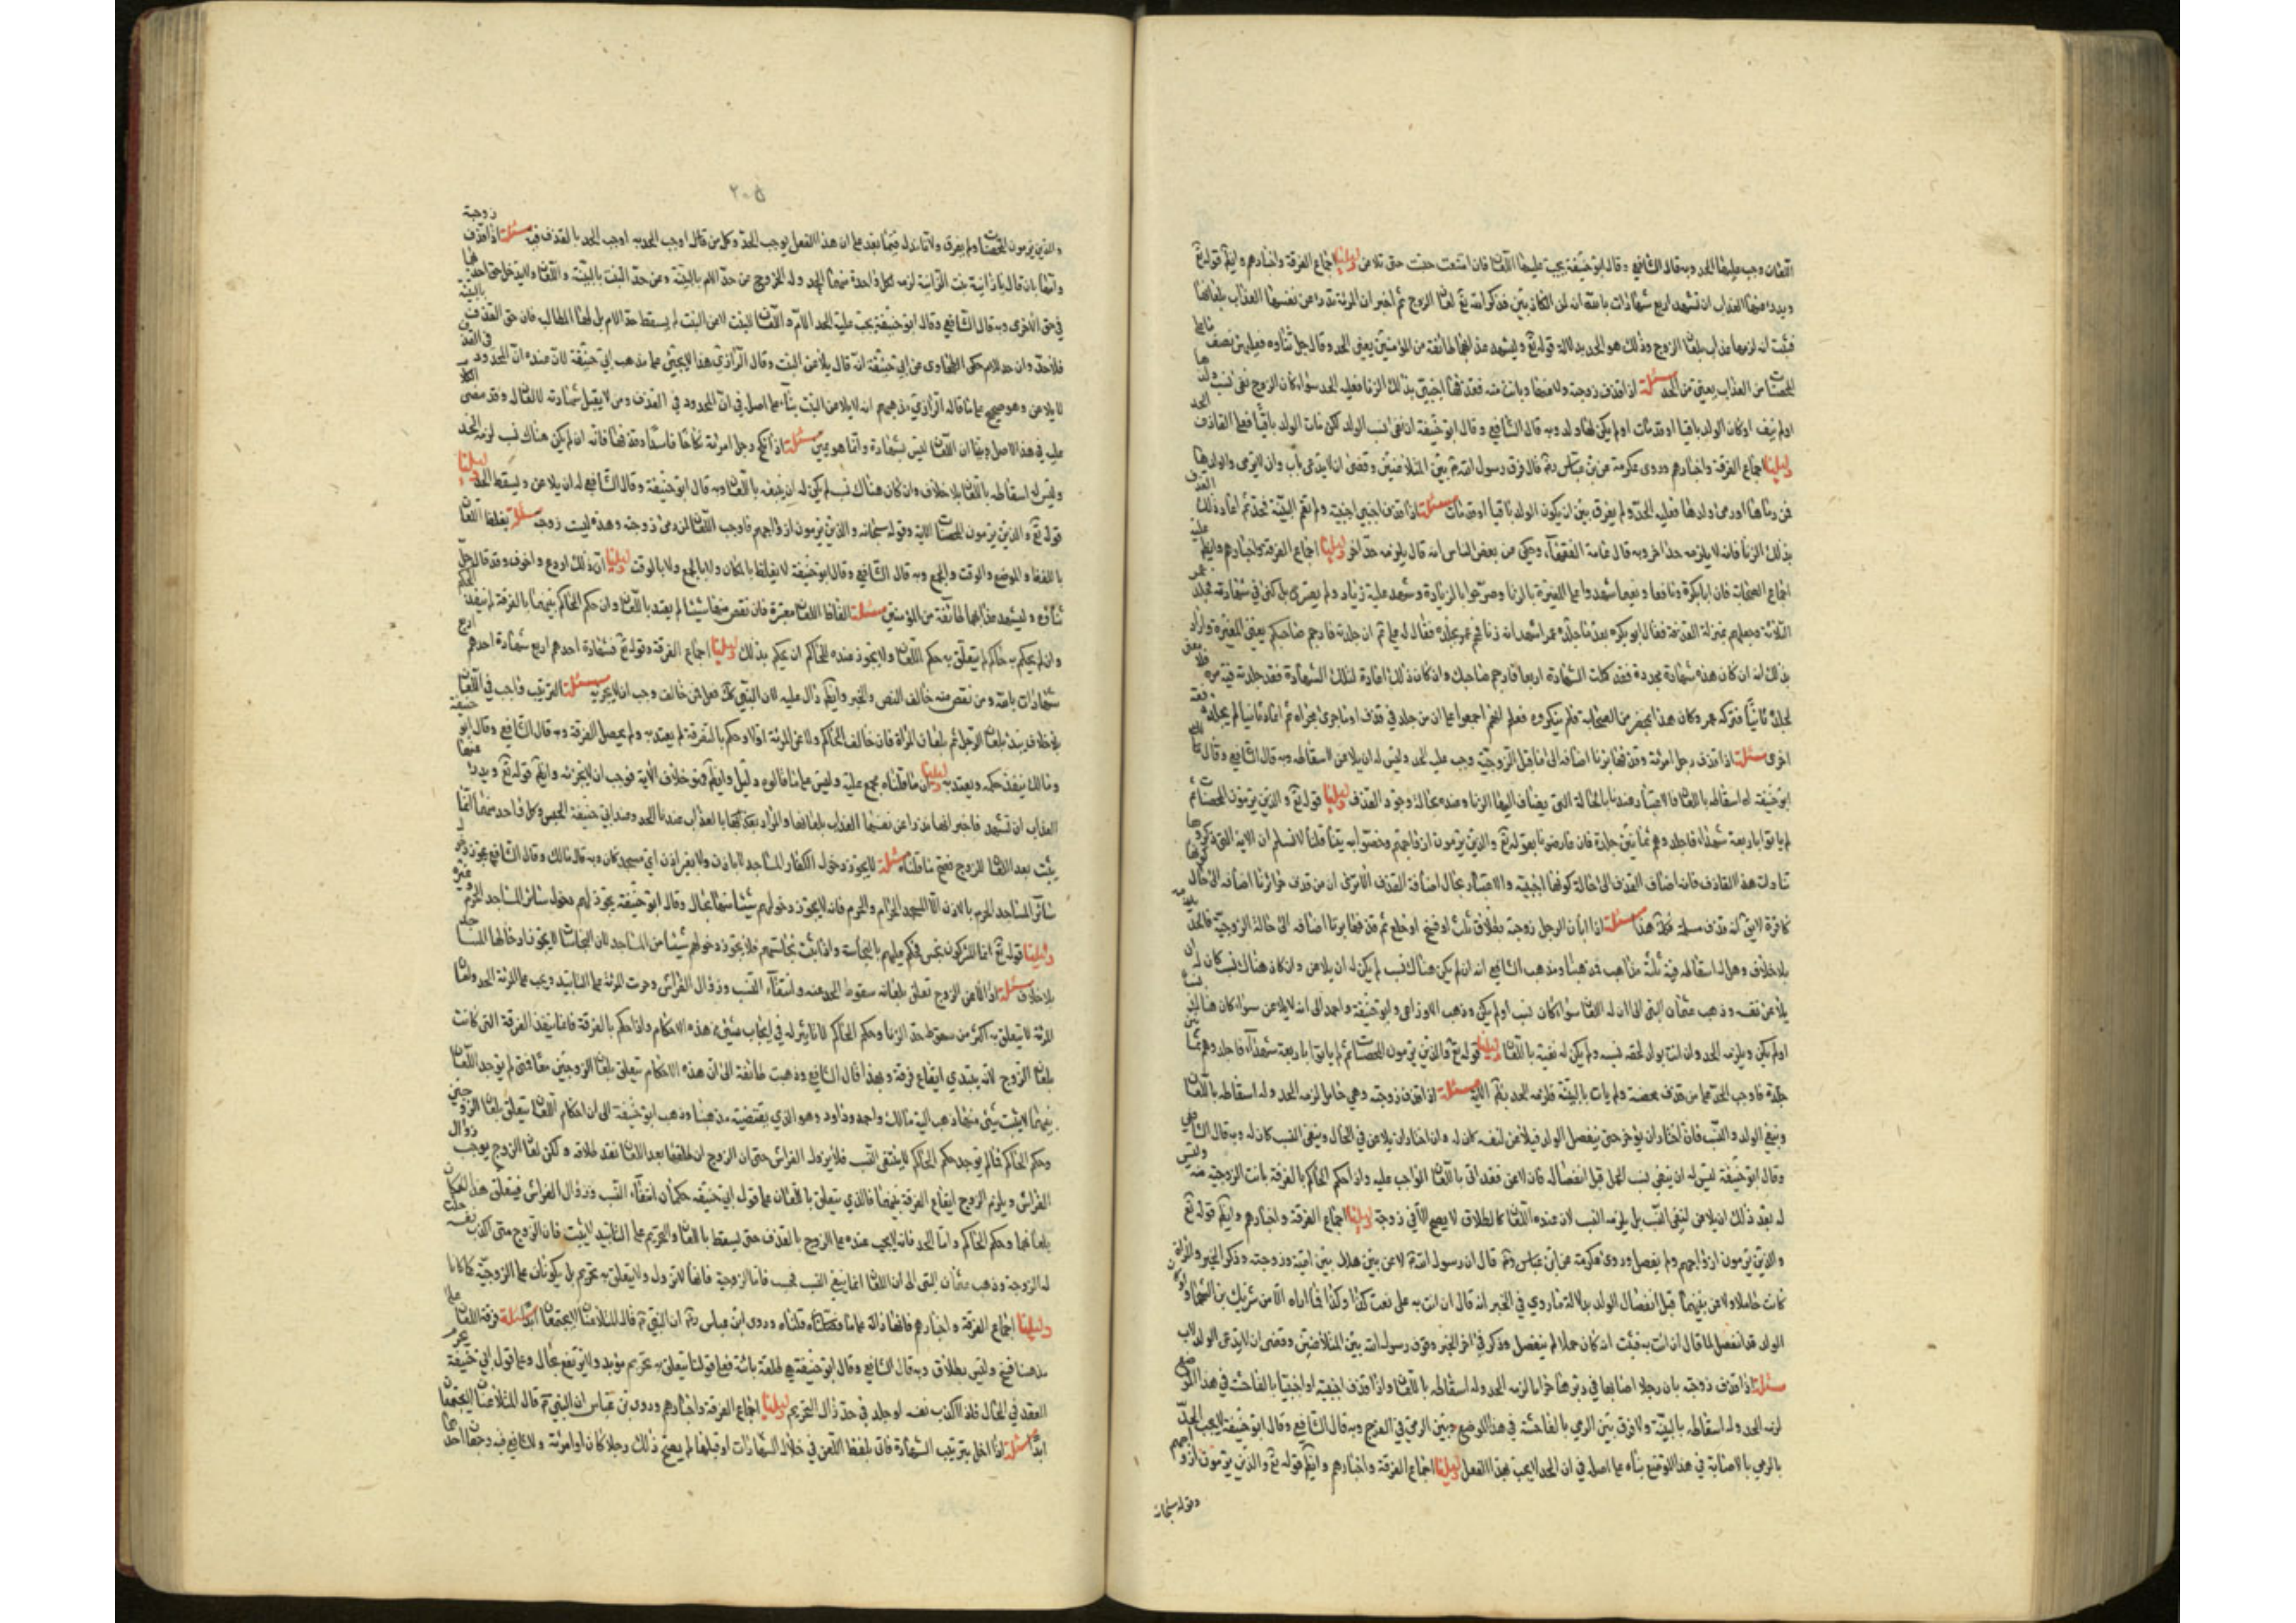 اللعان وجب عليها الحد وبه قال الشافعي وقال ابو حنيفة يجب عليها اللعان فان امتنعت حبست حتى تلاعن دليلنا اجماع الفرقة واخبارهم وايضا قوله تع
ويدرء عنها العذاب ان تشهد اربع شهادات بالله انه لمن الكاذبين فذكر الله تع لعان الزوج ثم اخبر ان المرئة تدرء عن نفسها العذاب بلعانها
فثبت انه لزمها عذاب بلعان الزوج وذلك هو الحد بدلالة قوله تع وليشهد عذابهما طائفة من المؤمنين يعني الحد وقال جل ثناؤه فعليهن نصف ما على
المحصنات من العذاب يعني من الحد مسئلة اذا قذف زوجته ولاعنها وبانت منه فقذفها اجنبي بذلك الزنا فعليه الحد سواء كان الزوج نفى نسب ولدها
اولم ينف او كان الولد باقيا او قد مات اولم يكن لها ولد وبه قال الشافعي وقال ابو حنيفة ان نفى نسب الولد لكن مات الولد باقيا فعلى القاذف الحد
دليلنا اجماع الفرقة واخبارهم وروى عكرمة عن بن عباس ره قال فرق رسول الله ص بين المتلاعنين وقضى ان لا يدعى باب وان لا يرمى ولا ولدها
فمن رماها او رمى ولدها فعليه الحد ولم يفرق بين ان يكون الولد باقيا او قد مات مسئلة اذا قذف اجنبي اجنبية ولم تقم البينة فحد ثم اعاد ذلك القذف
بذلك الزنا فانه لا يلزمه حد اخر وبه قال عامة الفقهاء، وحكي عن بعض الناس انه قال يلزمه حد اخر دليلنا اجماع الفرقة واخبارهم وايضا عليه
اجماع الصحابة فان ابا بكرة ونافعا ونفيعا شهدوا على المغيرة بالزنا وصرحوا بالزيادة وشهد عليه زياد ولم يصرح بل كنى في شهادته فجلد عمر
الثلاثة وجعلهم بمنزلة القذفة فقال ابو بكره بعد ما جلده عمر اشهد انه زنا فهم عمر بجلده فقال له علي ع ان جلدته فارجم صاحبكم يعني المغيرة واراد
بذلك انه ان كان هذه شهادة مجددة فقد كملت الشهادة اربعا فارجم صاحبك وان كان ذلك اعادة لتلك الشهادة فقد جلدته فيه مرة فلا معنى
لجلده ثانيا فتركه عمر وكان هذا بمحضر من الصحابة فلم ينكروه فعلم انهم اجمعوا على ان من جلد في قذف او ما جرى مجراه ثم اعاد ثانيا لم يجلد دفعة
اخرى مسئلة اذا قذف رجل امرئة وقذفها بزنا اضافه الى ما قبل الزوجية وجب عليه الحد وليس له ان يلاعن لاسقاطه وبه قال الشافعي وقال
ابو حنيفة له اسقاطه باللعان فالاعتبار عندنا بالحالة التي يضاف اليها الزنا وعنده بحالة وجود القذف دليلنا قوله تع والذين يرمون المحصنات ثم
لم ياتوا باربعة شهداء فاجلدوهم ثمانين جلدة فان عارضونا بقوله تع والذين يرمون ازواجهم وخصوا به بيننا قلنا لا نسلم ان الاية التي ذكروها
تناولت هذا القاذف فانه اضاف القذف الى حالة كونها اجنبية والاعتبار بحال اضافة القذف الا ترى ان من قذف حرا بزنا اضافه الى حال كونها
كافرة لا يق كه قذف مسلمة فكك هذا مسئلة اذا ابان الرجل زوجته بطلاق ثلث او فسخ او خلع ثم قذفها بزنا اضافه الى حالة الزوجية فالحد يلزمه
بلا خلاف وهل له اسقاطه فيه ثلثة مذاهب فذهبنا ومذهب الشافعي انه ان لم يكن هناك نسب لم يكن له ان يلاعن وان كان هناك نسب كان له ان
يلاعن نفيه وذهب عثمان البتي الى ان له اللعان سواء كان نسب اولم يكن وذهب الاوزاعي وابو حنيفة واحمد الى انه لا يلاعن سواء كان هناك نسب
اولم يكن ويلزمه الحد وان اتت بولد لحقه نسبه ولم يكن له نفيه باللعان دليلنا قوله تع والذين يرمون المحصنات ثم لم ياتوا باربعة شهداء فاجلدوهم ثمانين
جلدة فاوجب الحد على من قذف محصنة ولم يات بالبينة فلزمه الحد بحكم الاية مسئلة اذا قذف زوجته وهي حامل لزمه الحد وله اسقاطه باللعان
ونفي الولد والنسب فان اختار ان يؤخر حتى ينفصل الولد فيلاعن لنفيه كان له وان اختار ان يلاعن في الحال وينفي النسب كان له وبه قال الشافعي
وقال ابو حنيفة ليس له ان ينفي نسب الحمل قبل انفصاله فان لاعن فقد اتى باللعان الواجب عليه واذا حكم الحاكم بالفرقة بانت الزوجية منه وليس
له بعد ذلك ان يلاعن لنفي النسب بل يلزمه النسب لان عنده اللعان كالطلاق لا يصح الا في زوجة دليلنا اجماع الفرقة واخبارهم وايضا قوله تع
والذين يرمون ازواجهم ولم يفصل وروى عكرمة عن ابن عباس ره قال ان رسول الله ص لاعن بين هلال بن امية وزوجته وذكر الخبر والمرئة
كانت حاملا ولاعن بينهما قبل انفصال الولد بدلالة ما روي في الخبر انه قال ان اتت به على نعت كذا وكذا فما اراه الا من شريك بن السحماء ولو كان
الولد قد انفصل لما قال ان اتت به فثبت انه كان حملا لم ينفصل وذكر في اخر الخبر وفرق رسول الله بين المتلاعنين وقضى ان لا يدعى الولد لاب
مسئلة اذا قذف زوجته بان رجلا اصابها في دبرها حراما لزمه الحد وله اسقاطه باللعان واذا قذف اجنبية او اجنبيا بالفاحشة في هذا الموضع
لزمه الحد وله اسقاطه بالبينة ولا فرق بين الرمي بالفاحشة في هذا الموضع وبين الرمي في الفرج وبه قال الشافعي وقال ابو حنيفة لا يجب الحد
بالرمي بالاصابة في هذا الموضع بناء على اصله في ان الحد لا يجب بهذا الفعل دليلنا اجماع الفرقة واخبارهم وايضا قوله تع والذين يرمون ازواجهم
وقوله سبحانه
٢٠٥
والذين يرمون المحصنات ولم يفرق ولانا ندل فيما بعد على ان هذا الفعل يوجب الحد وكل من قال اوجب الحد به اوجب الحد بالقذف فيه مسئلة اذا قذف زوجته
وامها بان قال يا زانية بنت الزانية لزمه لكل واحدة منهما الحد وله المخرج عن حد الام بالبينة وعن حد البنت بالبينة واللعان ولا يدخل حق احدهما
في حق الاخرى وبه قال الشافعي وقال ابو حنيفة يجب عليه الحد للام واللعان للبنت لاعن البنت لم يسقط حد الام بل لها المطالبة فان حق القذف بالبينة
فلا حد وان حد للام حكى الطحاوي عن ابي حنيفة انه قال يلاعن البنت وقال الرازي هذا لا يجيئ على مذهب ابي حنيفة لان عنده ان المحدود في القذف
لا يلاعن وهو صحيح على ما قاله الرازي مذهبهم انه لا يلاعن البنت بناء على اصله في ان المحدود في القذف ومن لا يقبل شهادته لا لعان له وقد مضى الكلام
عليه في هذا الاصل وبينا ان اللعان ليس بشهادة وانما هو يمين مسئلة اذا نكح رجل امرئة نكاحا فاسدا وقذفها فانه ان لم يكن هناك نسب لزمه الحد
وليس له اسقاطه باللعان بلا خلاف وان كان هناك نسب لم يكن له ان ينفيه باللعان وبه قال ابو حنيفة وقال الشافعي له ان يلاعن ويسقط الحد دليلنا
قوله تع والذين يرمون المحصنات الاية وقوله سبحانه والذين يرمون ازواجهم فاوجب اللعان لمن رمى زوجته وهذه ليست زوجة مسئلة يغلظ اللعان
باللفظ والموضع والوقت والجمع وبه قال الشافعي وقال ابو حنيفة لا يغلظ بالمكان ولا بالجمع ولا بالوقت دليلنا ان ذلك اردع واخوف وقد قال جل
ثناؤه وليشهد عذابهما طائفة من المؤمنين مسئلة الفاظ اللعان معتبرة فان نقص منها شيئا لم يعتد باللعان وان حكم الحاكم بينهما بالفرقة لم ينفذ الحكم
وان لم يحكم به حاكم لم يتعلق به حكم اللعان ولا يجوز عنده للحاكم ان يحكم بذلك دليلنا اجماع الفرقة وقوله تع فشهادة احدهم اربع شهادة احدهم اربع
شهادات بالله ومن نقص منه خالف النص والخبر وايضا دال عليه لان النبي ص كك فعل فمن خالف وجب ان لا يجزيه مسئلة الترتيب واجب في اللعان
بلا خلاف يبدء بلعان الرجل ثم بلعان المرئة فان خالف الحاكم ولاعن المرئة اولا وحكم بالتفرقة لم يعتد به ولم يحصل الفرقة وبه قال الشافعي وقال ابو حنيفة
ومالك ينفذ حكمه ويعتد به دليلنا ان ما قلناه مجمع عليه وليس على ما قالوه دليل وايضا فهو خلاف الاية فوجب ان لا يجزئه وايضا قوله تع ويدرء عنها
العذاب ان تشهد فاخبر انها تدرء عن نفسها العذاب بلعانها والمراد بالعذاب عندنا الحد وعند ابي حنيفة الحبس وكل واحد منهما انما
يثبت بعد لعان الزوج فصح ما قلناه مسئلة لا يجوز دخول الكفار المساجد لا باذن ولا بغير اذن اي مسجد كان وبه قال مالك وقال الشافعي يجوز دخول
سائر المساجد الحرم بالاذن الا المسجد الحرام والحرم فانه لا يجوز دخولهم شيئا منها بحال وقال ابو حنيفة يجوز لهم دخول سائر المساجد الحرم وغيره
دليلنا قوله تع انما المشركون نجس فحكم عليهم بالنجاسة واذا ثبت نجاستهم فلا يجوز دخولهم شيئا من المساجد لان النجاسات لا يجوز ادخالها المساجد
بلا خلاف مسئلة اذا لاعن الزوج تعلق بلعانه سقوط الحد عنه وانتفاء النسب وزوال الفراش وحرمت المرئة على التابيد ويجب على المرئة الحد ولعان
المرئة لا يتعلق به اكثر من سقوط حد الزنا وحكم الحاكم لا تاثير له في ايجاب شيئ من هذه الاحكام واذا حكم بالفرقة فانما ينفذ الفرقة التي كانت
بلعان الزوج لانه يبتدي ايقاع فرقة وبهذا قال الشافعي وذهبت طائفة الى ان هذه الاحكام يتعلق بلعان الزوجين معا فمتى لم يوجد اللعان
بينهما لا يثبت شيئ منها ذهب اليه مالك واحمد وداود وهو الذي يقتضيه مذهبنا وذهب ابو حنيفة الى ان احكام اللعان يتعلق بلعان الزوجين
وحكم الحاكم فما لم يوجد حكم الحاكم لا ينتفى النسب فلا يزول الفراش حتى ان الزوج ان طلقها بعد اللعان نفذ طلاقه ولكن لعان الزوج يوجب زوال
الفراش ويلزم الزوج ايقاع الفرقة بينهما فالذي يتعلق باللعان على قول ابي حنيفة حكمان انتفاء النسب وزوال الفراش فيتعلق هذا الحكمان
بلعانهما وحكم الحاكم واما الحد فانه لا يجب عنده على الزوج بالقذف حتى يسقط باللعان والتحريم على التابيد لا يثبت فان الزوج متى اكذب نفسه حلت
له الزوجة وذهب عثمان البتي الى ان اللعان انما ينفي النسب فحسب فاما الزوجية فانها لا تزول ولا يتعلق به تحريم بل يكونان على الزوجية كما كانا
دليلنا اجماع الفرقة واخبارهم فانها دالة على ما قلناه وروى ابن عباس ره ان النبي ص قال المتلاعنان لا يجتمعان ابدا مسئلة فرقة اللعان على
مذهبنا فسخ وليس بطلاق وبه قال الشافعي وقال ابو حنيفة هي طلقة بائنة فعلى قولنا يتعلق به تحريم مؤبد ولا يرتفع بحال وعلى قول ابي حنيفة يحرم
العقد في الحال فاذا اكذب نفسه او جلد في حد زال التحريم دليلنا اجماع الفرقة واخبارهم وروى بن عباس ان النبي ص قال المتلاعنان لا يجتمعان
ابدا مسئلة اذا اخل بترتيب الشهادة فاتى بلفظ اللعن في خلال الشهادات او قبلها لم يصح ذلك رجلا كان او امرئة وللشافعي فيه وجهان احدهما